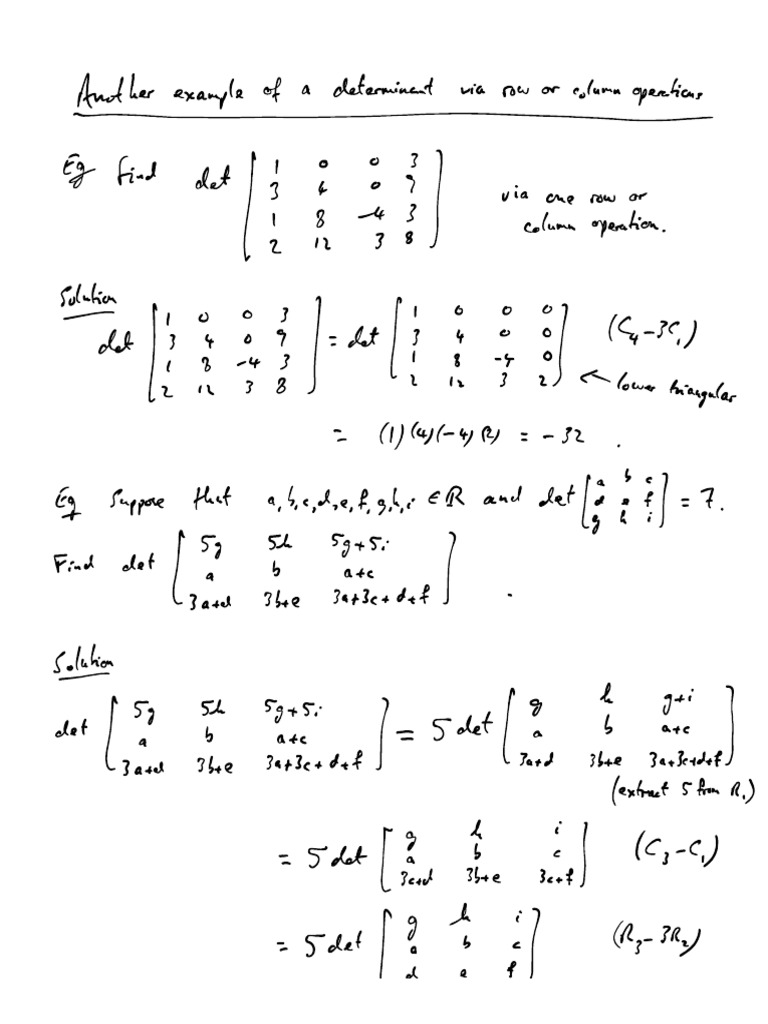 Another example of a determinant via row or column operations
Eg Find det [ 1 0 0 3
3 4 0 9
1 8 -4 3
2 12 3 8 ]
via one row or
column operation.
Solution
det [ 1 0 0 3
3 4 0 9
1 8 -4 3
2 12 3 8 ] = det [ 1 0 0 0
3 4 0 0
1 8 -4 0
2 12 3 2 ] (C₄-3C₁)
← lower triangular
= (1)(4)(-4)(2) = -32 .
Eg Suppose that a,b,c,d,e,f,g,h,i ∈ ℝ and det [ a b c
d e f
g h i ] = 7.
Find det [ 5g 5h 5g+5i
a b a+c
3a+d 3b+e 3a+3c+d+f ] .
Solution
det [ 5g 5h 5g+5i
a b a+c
3a+d 3b+e 3a+3c+d+f ] = 5 det [ g h g+i
a b a+c
3a+d 3b+e 3a+3c+d+f ]
(extract 5 from R₁)
= 5 det [ g h i
a b c
3a+d 3b+e 3c+f ] (C₃-C₁)
= 5 det [ g h i
a b c
d e f ] (R₃-3R₂)